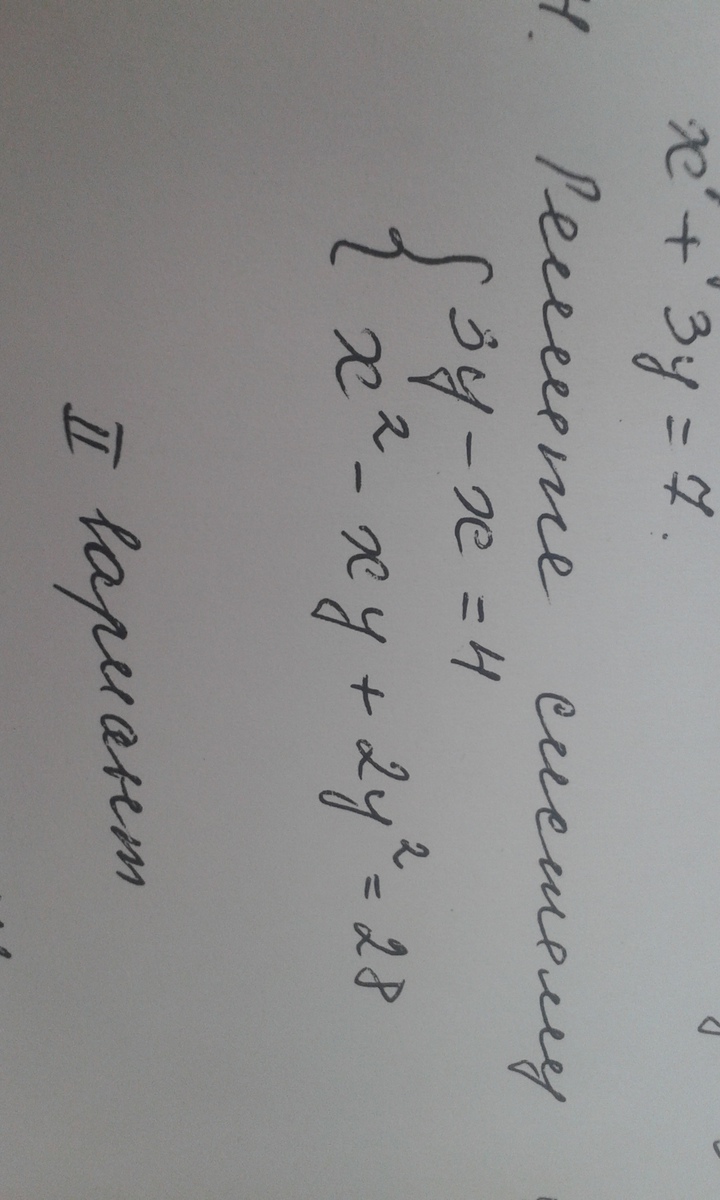 x² + 3y = 7.
4. Решите систему
{ 3y - x = 4
x² - xy + 2y² = 28
II вариант